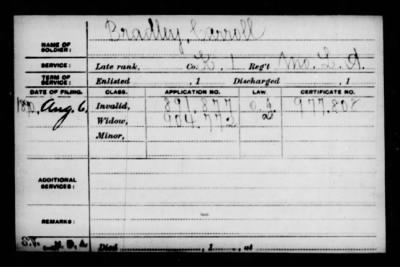 NAME OF SOLDIER: Bradley, Carroll
SERVICE: Late rank, Co. K, 1 Reg't Mo. L. A.
TERM OF SERVICE: Enlisted , 1 Discharged , 1
DATE OF FILING. CLASS. APPLICATION NO. LAW. CERTIFICATE NO.
1890, Aug. 6, Invalid, 891.877 977.808
Widow, 904.772
Minor,
ADDITIONAL SERVICES:
REMARKS:
Died , 1 , at